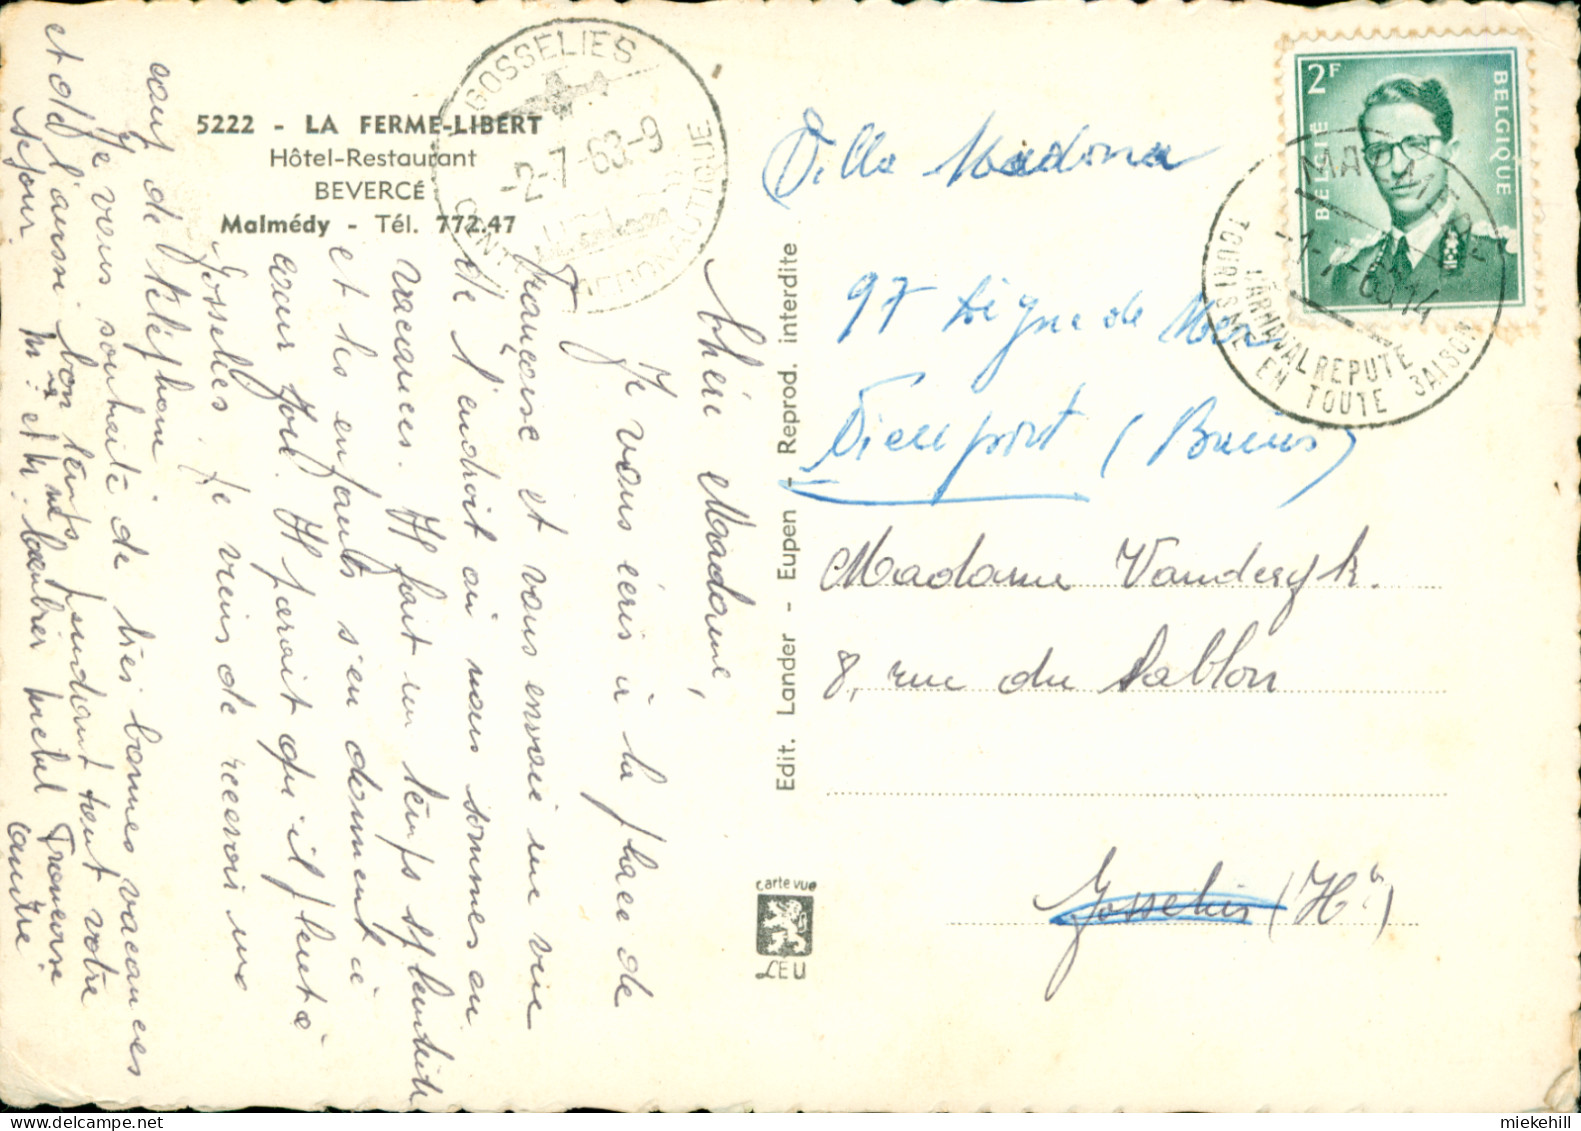 5222 - LA FERME-LIBERT
Hôtel-Restaurant
BEVERCÉ
Malmédy - Tél. 772.47
GOSSELIES
-2-7-63-9
AERONAUTIQUE
Chère Madame,
Je vous écris à la place de
Françoise et vous envoie une vue
de l'endroit où nous sommes en
vacances. Il fait un temps splendide
et les enfants s'en donnent à
cœur joie. Il paraît qu'il pleut à
Gosselies. Je viens de recevoir un
coup de téléphone
Je vous souhaite de très bonnes vacances
et du bon temps pendant votre
séjour.
Edit. Lander - Eupen - Reprod. interdite
carte vue
LEU
2F
BELGIE
BELGIQUE
-1-7-63 14
CARNAVAL REPUTE
TOURISME EN TOUTE SAISON
Villa Madona
97 Digue de Mer
Nieuport (Bains)
Madame Vanderyk.
8, rue du Sablon
Gosselies (Ht)
miekehill